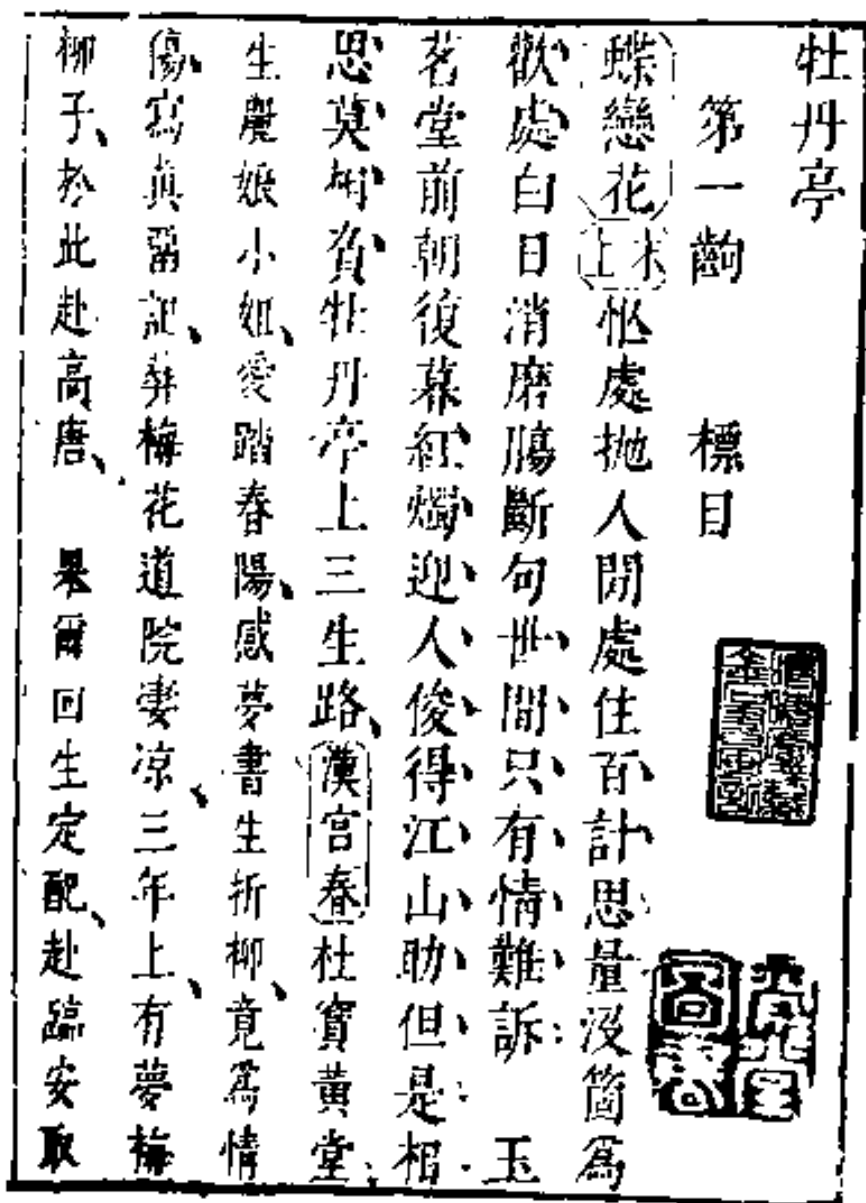 牡丹亭
第一齣 標目
蝶戀花 末上 忙處拋人閒處住百計思量沒箇爲
歡處白日消磨腸斷句世間只有情難訴 玉
茗堂前朝復暮紅燭迎人俊得江山助但是相
思莫相負牡丹亭上三生路 漢宮春 杜寶黃堂
生麗娘小姐愛踏春陽感夢書生折柳竟爲情
傷寫眞留記葬梅花道院凄凉三年上有夢梅
柳子於此赴高唐 果爾回生定配赴臨安取